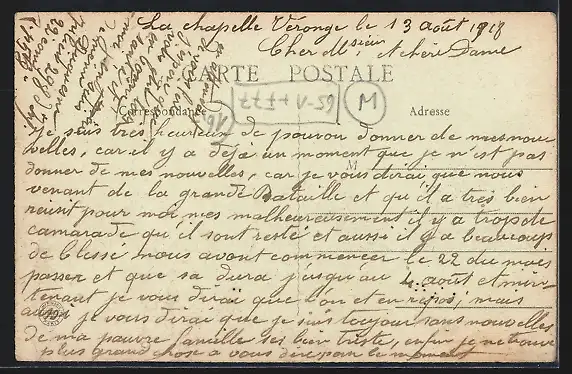 La chapelle Véronge le 13 août 1918
Cher Msieur et chère Dame
CARTE POSTALE
Correspondance
Adresse
M
M
Je suis très heureux de pouvoir donner de mes nou
velles, car il y a déjà un moment que je n'est pas
donner de mes nouvelles, car je vous dirai que nous
venant de la grande Bataille et qu'il a très bien
reusit pour moi mes malheureusement il y a trop de
camarade qu'il sont resté et aussi il y a beaucoup
de blessé nous avont commencer le 22 du mois
passer et que sa dura jusqu'au 4 août et min
tenant je vous dirai que l'on et en repos, mais
aussi je vous dirai que je suis toujour sans nouvelles
de ma pauvre famille ses bien triste, enfin je ne trouve
plus grand chose a vous dire pour le moment